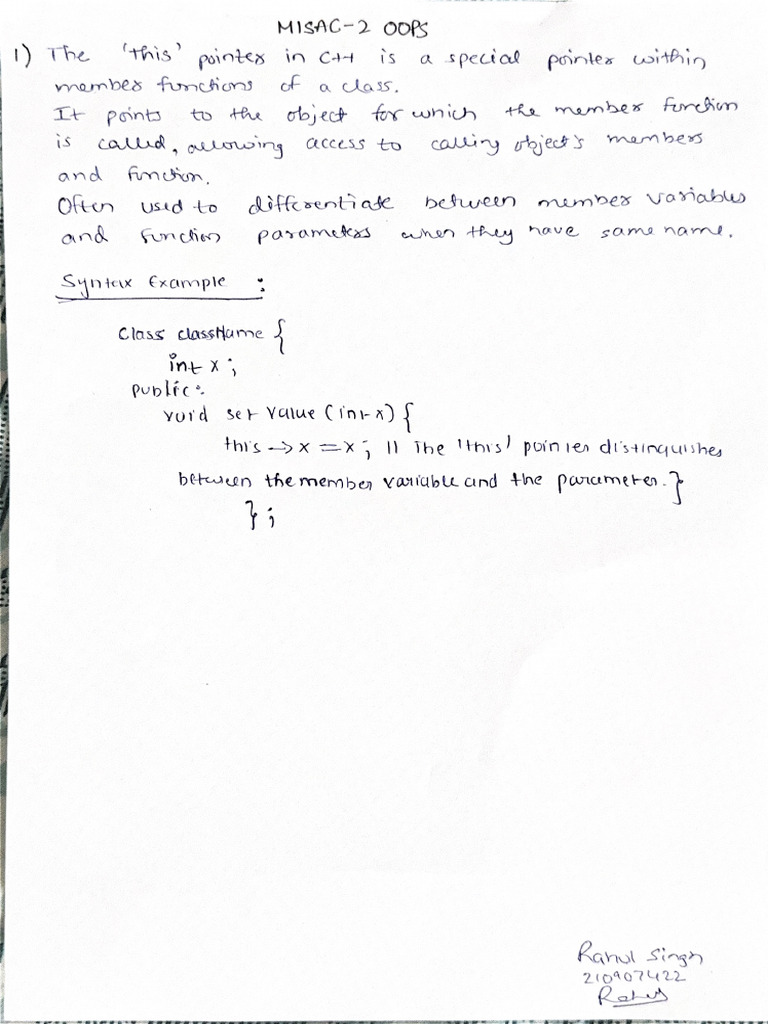 MISAC-2 OOPS
1) The 'this' pointer in C++ is a special pointer within
member functions of a class.
It points to the object for which the member function
is called, allowing access to calling object's members
and function.
Often used to differentiate between member variables
and function parameters when they have same name.
Syntax Example :
Class className {
int x;
public:
void set value (int x) {
this → x = x; // The 'this' pointer distinguishes
between the member variable and the parameter. }
};
Rahul Singh
210907422
Rahul